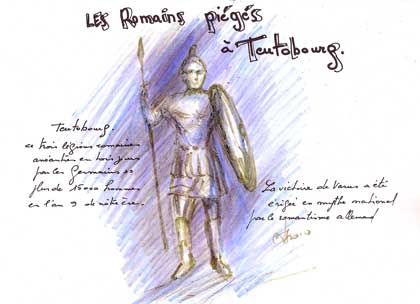 LES Romains piégés
à Teutobourg.
Teutobourg.
ce trois légions romaines
anéanties en trois jours
par les Germains
plus de 15000 hommes
en l'an 9 de notre ère.
La victoire de Varus a été
érigée en mythe national
par le romantisme allemand